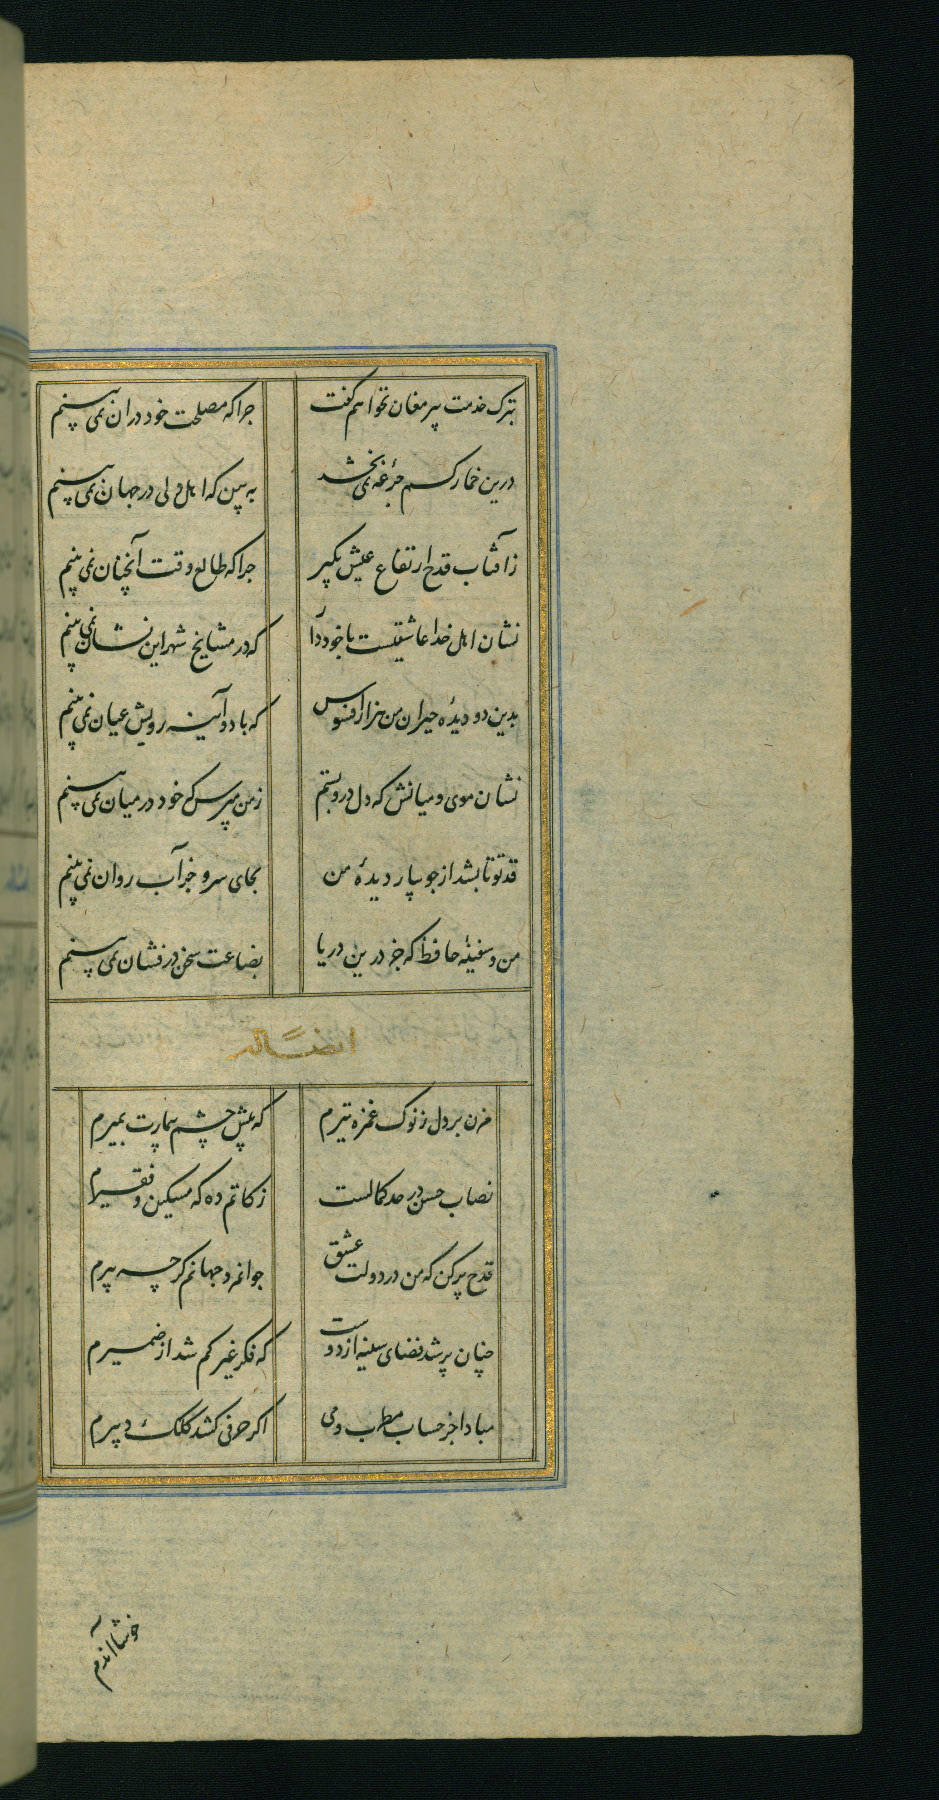 بترک خدمت پیر مغان نخواهم گفت چرا که مصلحت خود دران نمی بینم
درین خمار کسم جرعهٔ نمی بخشد به بین که اهل دلی در جهان نمی بینم
ز آفتاب قدح ارتفاع عیش بگیر چرا که طالع وقت آنچنان نمی بینم
نشان اهل خدا عاشقیست با خود دآر که در مشایخ شهر این نشان نمی بینم
بدین دو دیدهٔ حیران من هزار افسوس که با دو آینه رویش عیان نمی بینم
نشان موی و میانش که دل درو بستم ز من مپرس که خود در میان نمی بینم
قد تو تا بشد از جویبار دیدهٔ من بجای سرو جز آب روان نمی بینم
من و سفینهٔ حافظ که جز درین دریا بضاعت سخن درفشان نمی بینم
ایضاً له
مزن بر دل ز نوک غمزه تیرم که پیش چشم بیمارت بمیرم
نصاب حسن در حد کمالست زکاتم ده که مسکین و فقیرم
قدح پر کن که من در دولت عشق جوانمرد جهانم گرچه پیرم
چنان پر شد فضای سینه از دوست که فکر غیر کم شد از ضمیرم
مبادا جز حساب مطرب و می اگر حرفی کشد کلک دبیرم
خوشا آندم